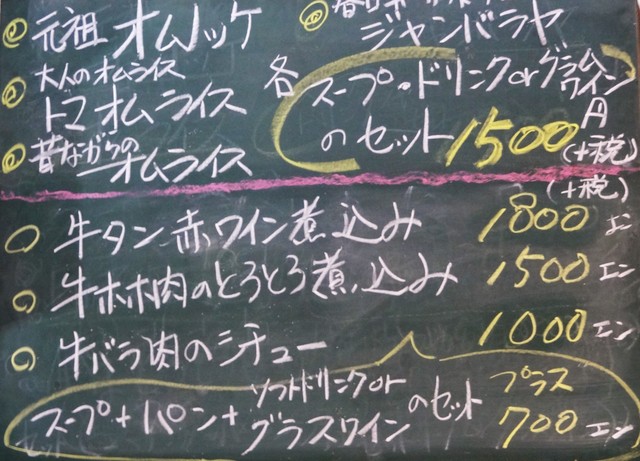 元祖オムッケ
ジャンバラヤ
大人のオムライス
ドマオムライス
昔ながらのオムライス
各
スープ・ドリンクorグラムワイン
のセット1500円
(+税)
(+税)
牛タン赤ワイン煮込み 1800エン
牛ホホ肉のとろとろ煮込み 1500エン
牛バラ肉のシチュー 1000エン
スープ+パン+ソフトドリンクor
グラスワインのセット プラス
700エン